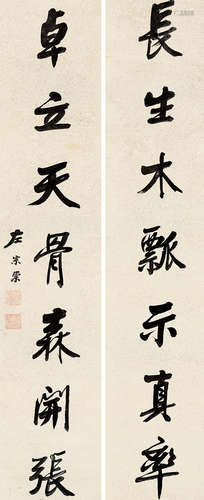 長生木瓢示真率
卓立天骨森開張
左宗棠